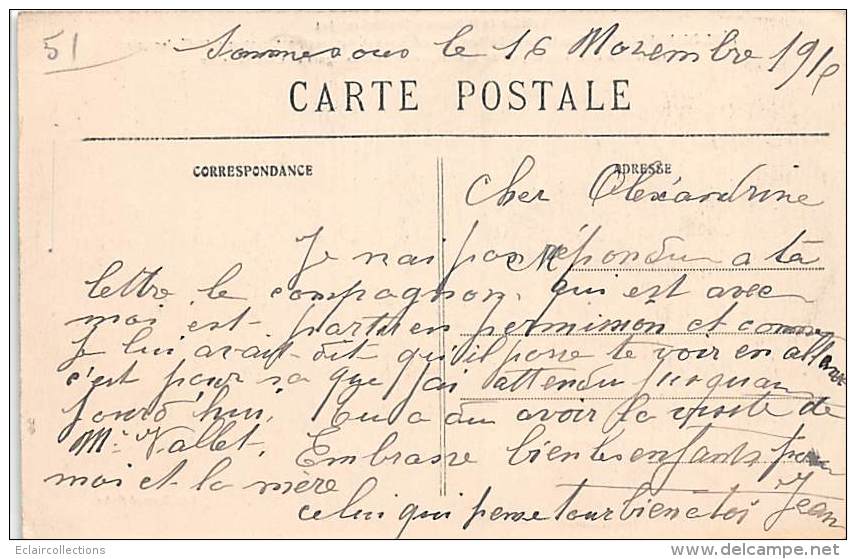 51
Sommesous le 16 Novembre 191
CARTE POSTALE
CORRESPONDANCE
ADRESSE
Cher Alexandrine
Je nai pas répondu a ta
lettre le compagnon qui est avec
moi est partien permission et comme
Je lui avait dit qu'il passe te voir en allant
c'est pour sa que j'ai attendu jusquau
jourd'hui, tu a du avoir la visite de
Mr Vallet, Embrasse bien les enfants pour
moi et la mère
celui qui pense tour bien a toi Jean
©Eclaircollections
http://eclaircollections.delcampe.net